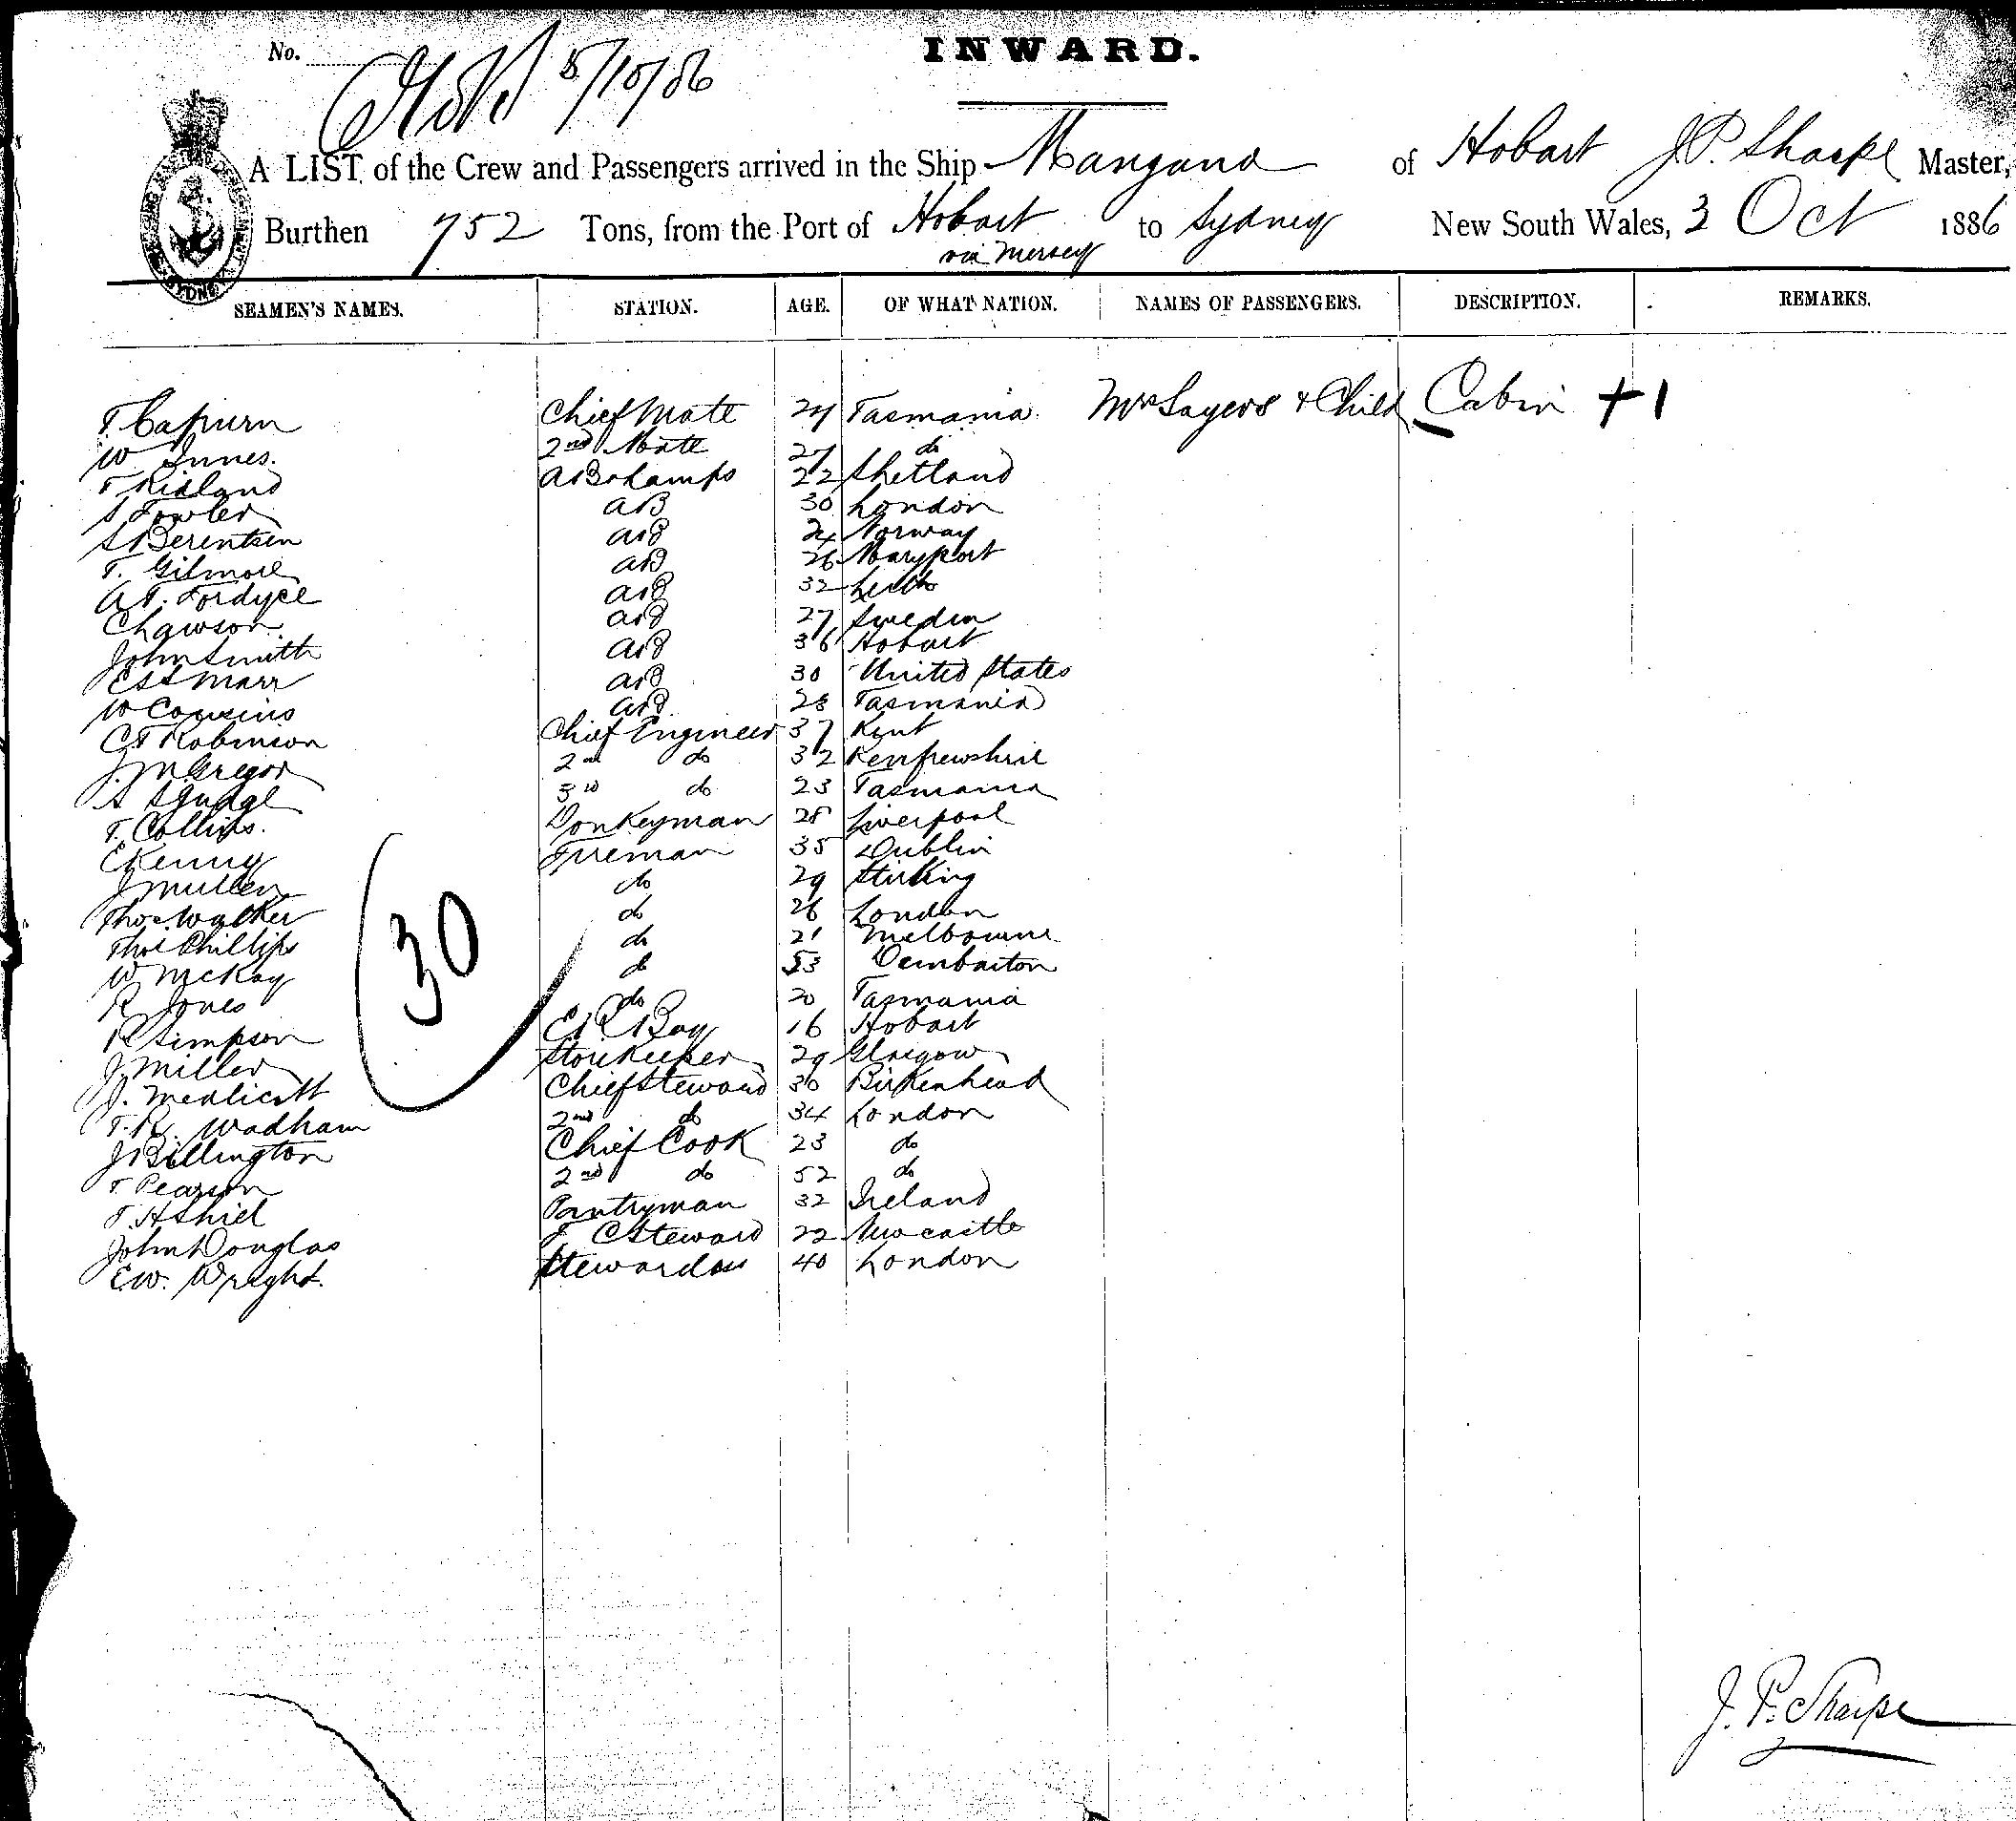 No.
5/10/86
INWARD.
A LIST of the Crew and Passengers arrived in the Ship Mangana of Hobart J.P. Sharpe Master,
Burthen 752 Tons, from the Port of Hobart to Sydney New South Wales, 3 Oct 1886
via Mersey
SEAMEN'S NAMES. STATION. AGE. OF WHAT NATION. NAMES OF PASSENGERS. DESCRIPTION. REMARKS.
T Capurn Chief Mate 24 Tasmania Mrs Sayers & Child Cabin + 1
W. Innes. 2nd Mate 27 do
T Ridland AB & Lamps 22 Shetland
S Fowler AB 30 London
S Berentsen AB 24 Norway
T. Gilmore AB 26 Maryport
A.T. Fordyce AB 32 Leith
C Lawson AB 27 Sweden
John Smith AB 36 Hobart
E S S Marr AB 30 United States
W Cousins AB 28 Tasmania
C T Robinson Chief Engineer 37 Kent
J. McGregor 2nd do 32 Renfrewshire
S 3rd do 23 Tasmania
T. Collins. Donkeyman 28 Liverpool
E Kenny Fireman 35 Dublin
J Mullen do 29 Stirling
Thos Walker do 26 London
Thos Phillips do 21 Melbourne
W McKay do 53 Dumbarton
R Jones do 20 Tasmania
R Simpson E R Boy 16 Hobart
J. Miller Storekeeper 29 Glasgow
J. Medlicott Chief Steward 30 Birkenhead
T. R. Wadham 2nd do 34 London
J Billington Chief Cook 23 do
T. Pearson 2nd do 52 do
T. H Shiel Pantryman 32 Ireland
John Douglas F C Steward 22 Newcastle
E.W. Wright. Stewardess 40 London
30
J. P. Sharpe